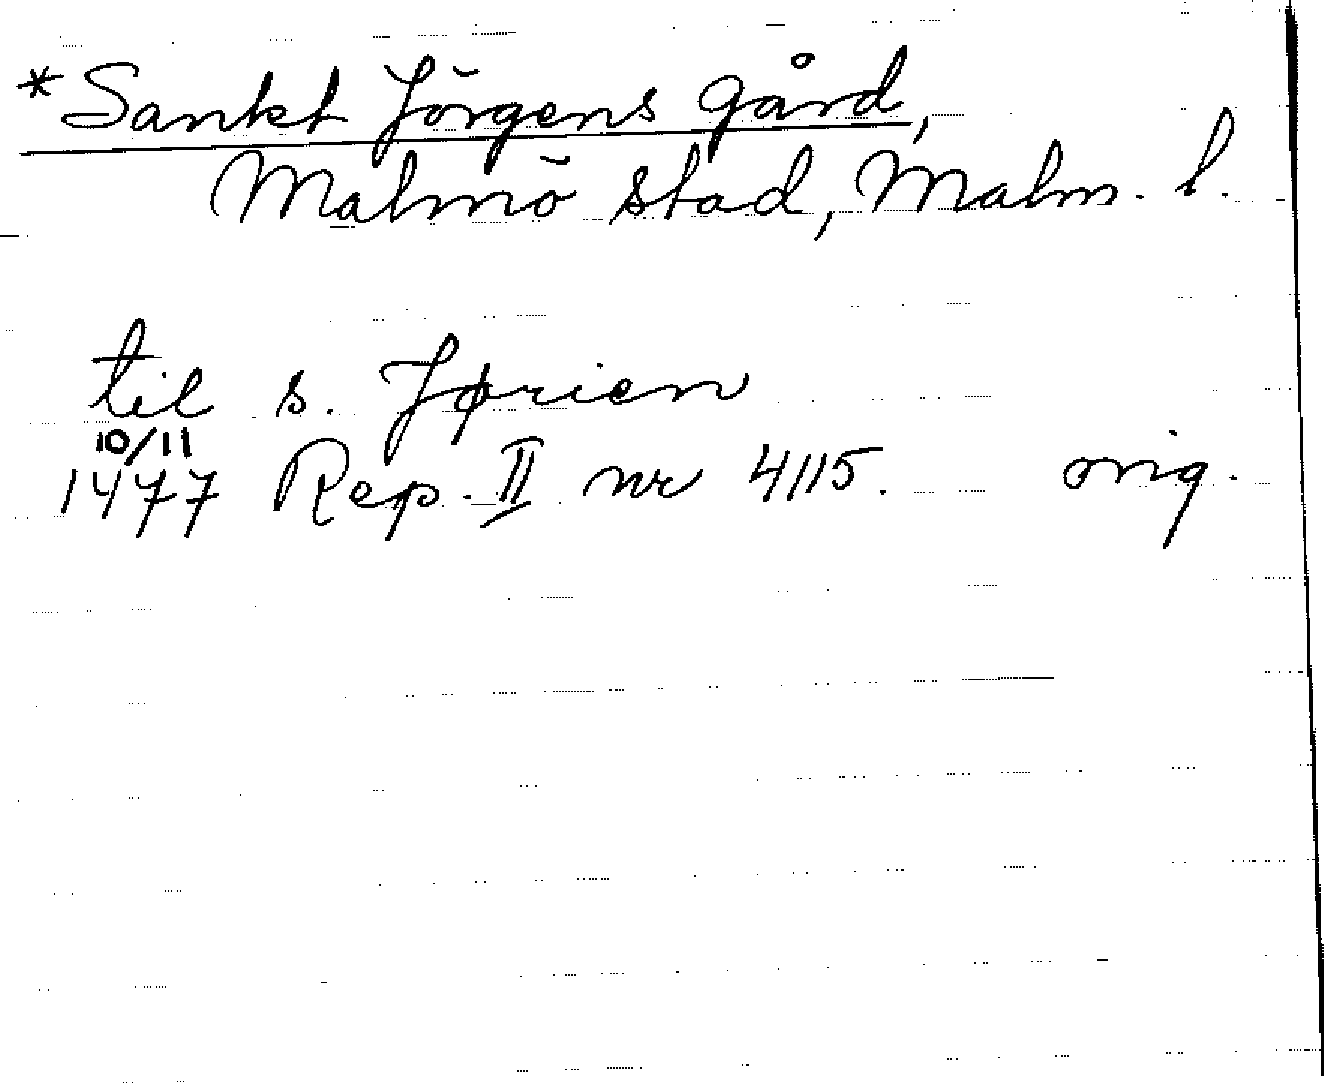 *Sankt Jörgens gård,
Malmö stad, Malm. l.
til s. Jørien
10/11
1477 Rep. II nr 4115. orig.